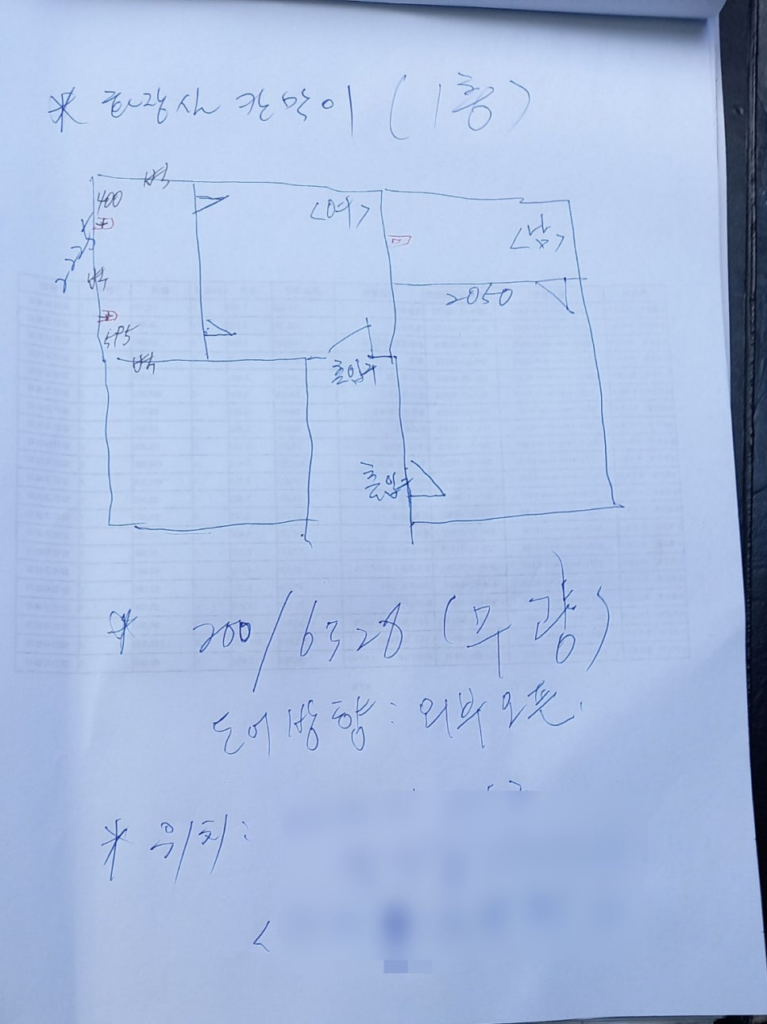 * 화장실 칸막이 (1층)
벽
400
<여>
<남>
벽
2050
595
벽
출입구
출입구
* 200/6328 (무광)
도어방향: 외부오픈.
* 위치:
<